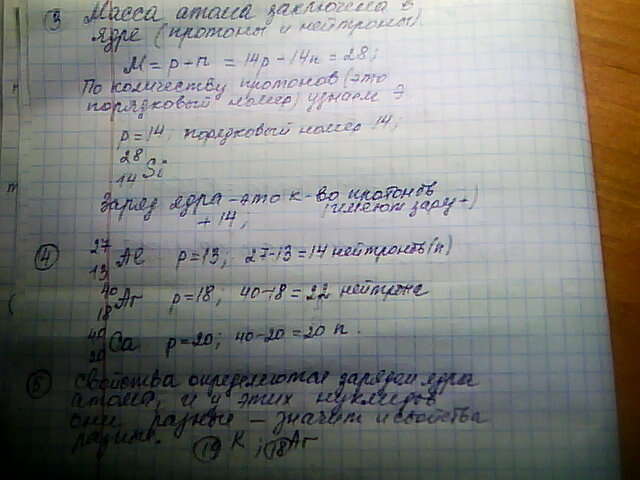 ③ Масса атома заключена в
ядре (протоны и нейтроны)
M = p + n = 14p + 14n = 28;
По количеству протонов (это
порядковый номер) узнаем Э
p = 14; порядковый номер 14;
28
14 Si
Заряд ядра - это к-во протонов
+14; (имеют заряд +)
④ 27 13 Al p = 13; 27-13 = 14 нейтронов (n)
40 18 Ar p = 18, 40-18 = 22 нейтрона
40 20 Ca p = 20; 40-20 = 20 n.
⑤ Свойства определяются зарядом ядра
атома, и у этих нуклидов
они разные - значит и свойства
разные. 19 K ; 18 Ar